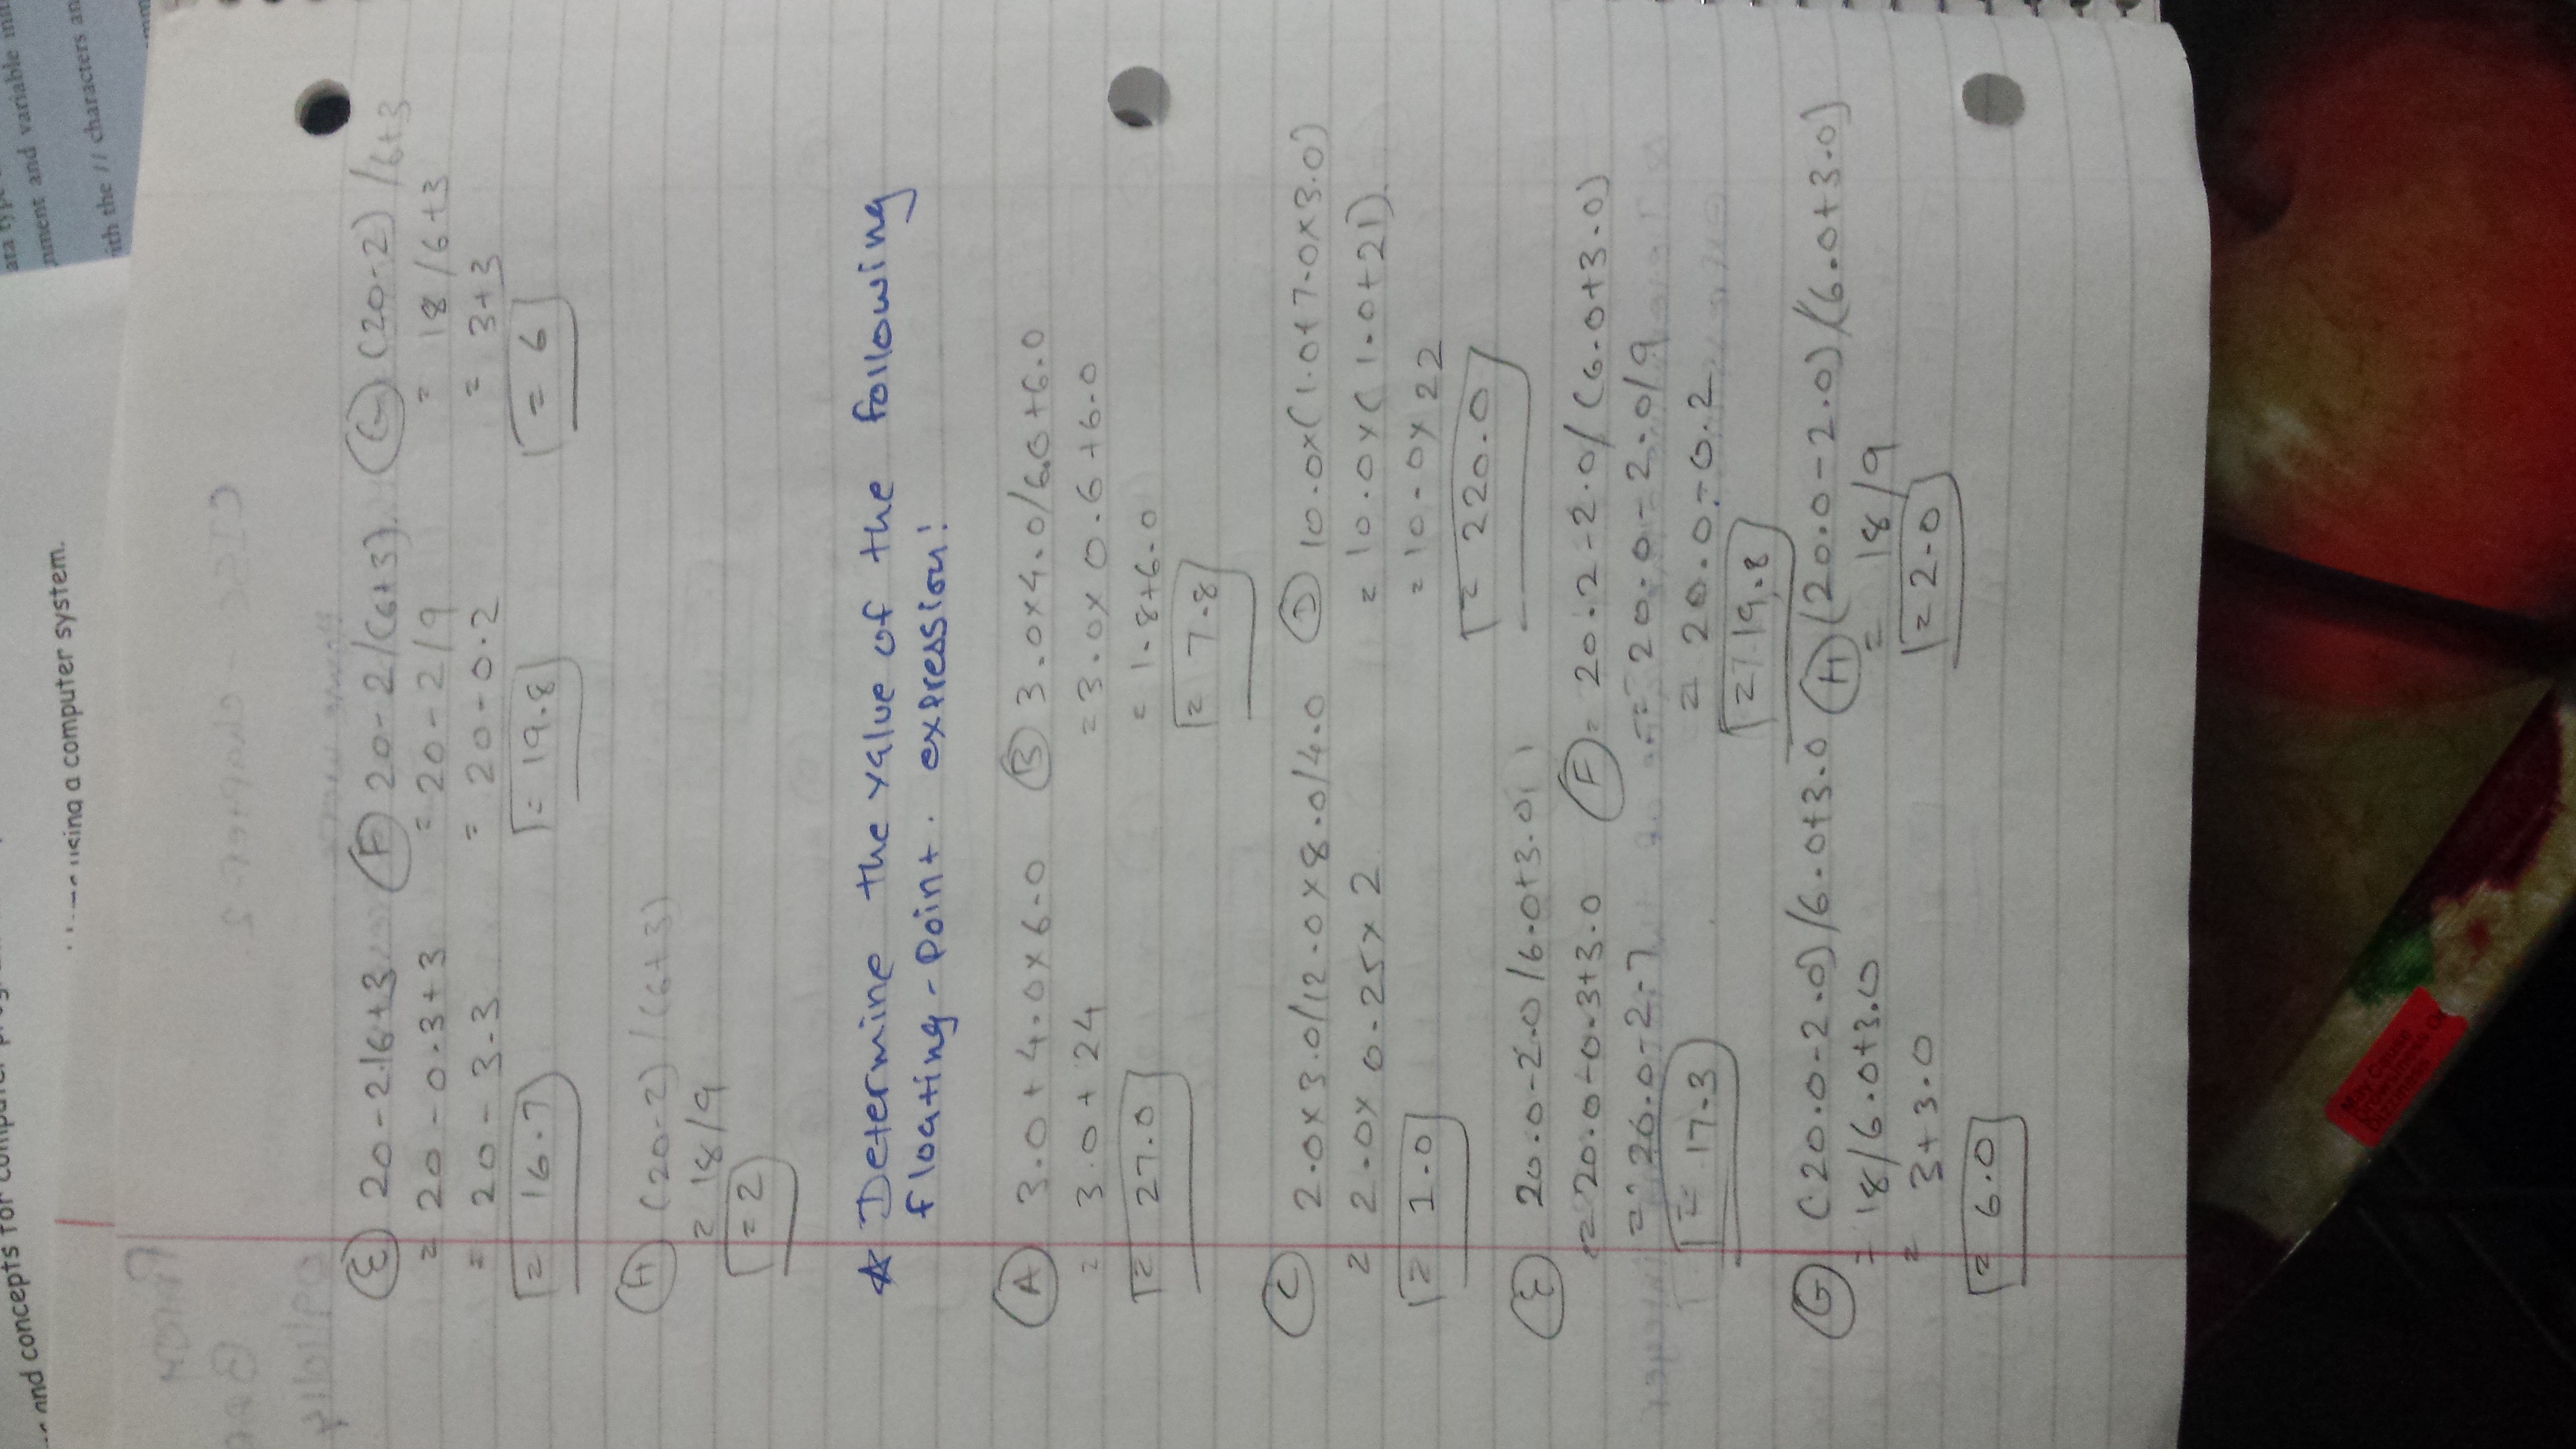 and concepts for
using a computer system.
nment and variable
ith the // characters an
E 20-2/6+3
= 20-0.3+3
= 20-3.3
= 16.7
F 20-2/(6+3)
= 20-2/9
= 20-0.2
= 19.8
G (20-2)/6+3
= 18/6+3
= 3+3
= 6
H (20-2)/(6+3)
= 18/9
= 2
☆ Determine the value of the following
floating-point. expression:
A 3.0+4.0x6.0
= 3.0+24
= 27.0
B 3.0x4.0/6.0+6.0
= 3.0x0.6+6.0
= 1.8+6.0
= 7.8
C 2.0x3.0/12.0x8.0/4.0
= 2.0x0.25x2
= 1.0
D 10.0x(1.0+7.0x3.0)
= 10.0x(1.0+21).
= 10.0x22
= 220.0
E 20.0-2.0/6.0+3.0
= 20.0-0.3+3.0
= 20.0-2.7
= 17.3
F = 20.2-2.0/(6.0+3.0)
= 20.0-2.0/9
= 20.0-0.2
= 19.8
G (20.0-2.0)/6.0+3.0
= 18/6.0+3.0
= 3+3.0
= 6.0
H (20.0-2.0)/(6.0+3.0)
= 18/9
= 2.0
May Cause